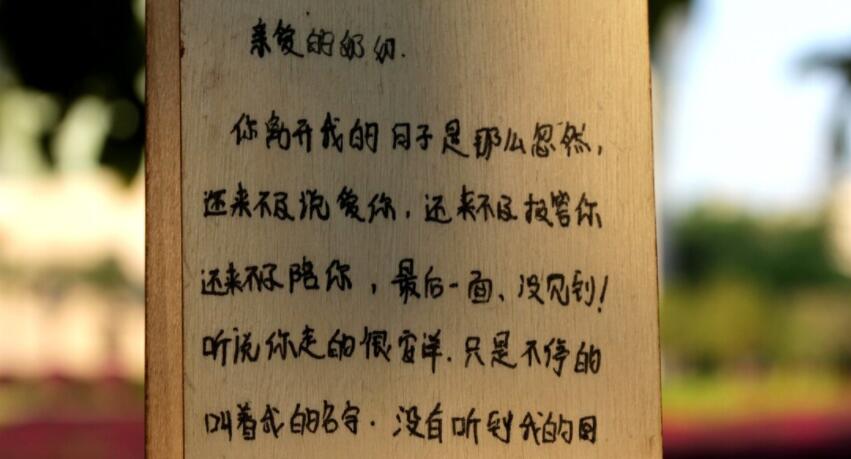 亲爱的奶奶.
你离开我的日子是那么忽然,
还来不及说爱你,还来不及报答你
还来不及陪你,最后一面、没见到!
听说你走的很安洋.只是不停的
叫着我的名字.没有听到我的回